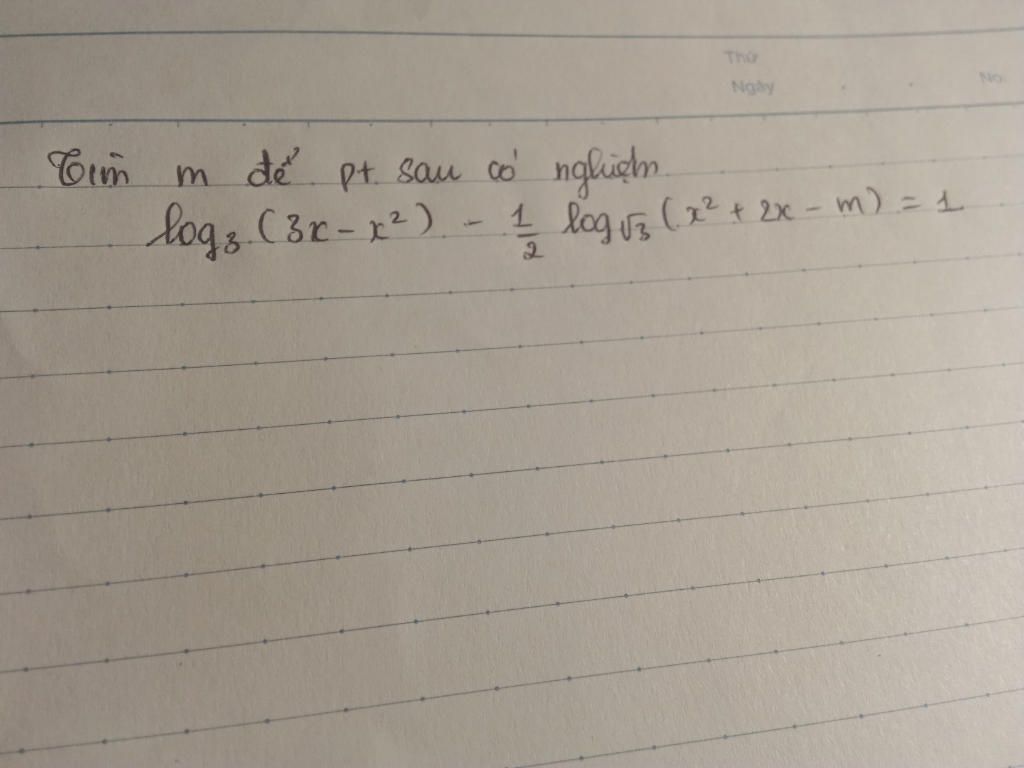 Thứ
Ngày No.
Tìm m để pt sau có nghiệm
log₃ (3x - x²) - 1/2 log√3 (x² + 2x - m) = 1